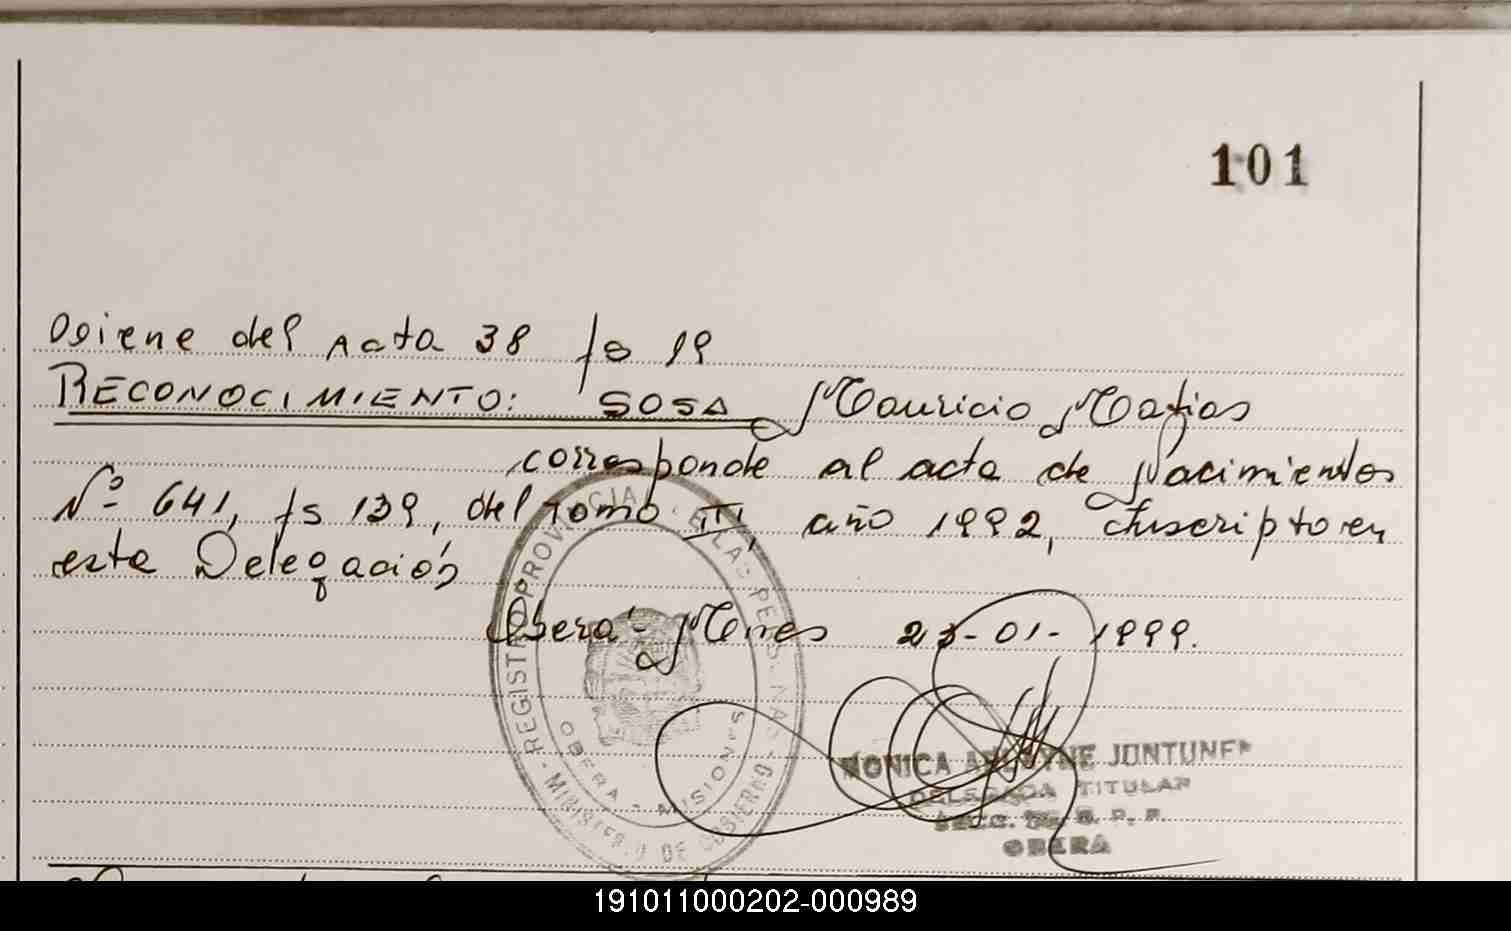 101
Viene del Acta 38 fs 19
RECONOCIMIENTO: SOSA Mauricio Matias
corresponde al acta de Nacimientos
Nº 641, fs 139, del Tomo III, año 1992, Inscripto en
esta Delegación
Oberá - Mnes 23-01-1999.
REGISTRO PROVINCIAL DE LAS PERSONAS
MINISTERIO DE GOBIERNO
OBERA - MISIONES
MONICA JUNTUNEN
DELEGADA TITULAR
OBERA
191011000202-000989